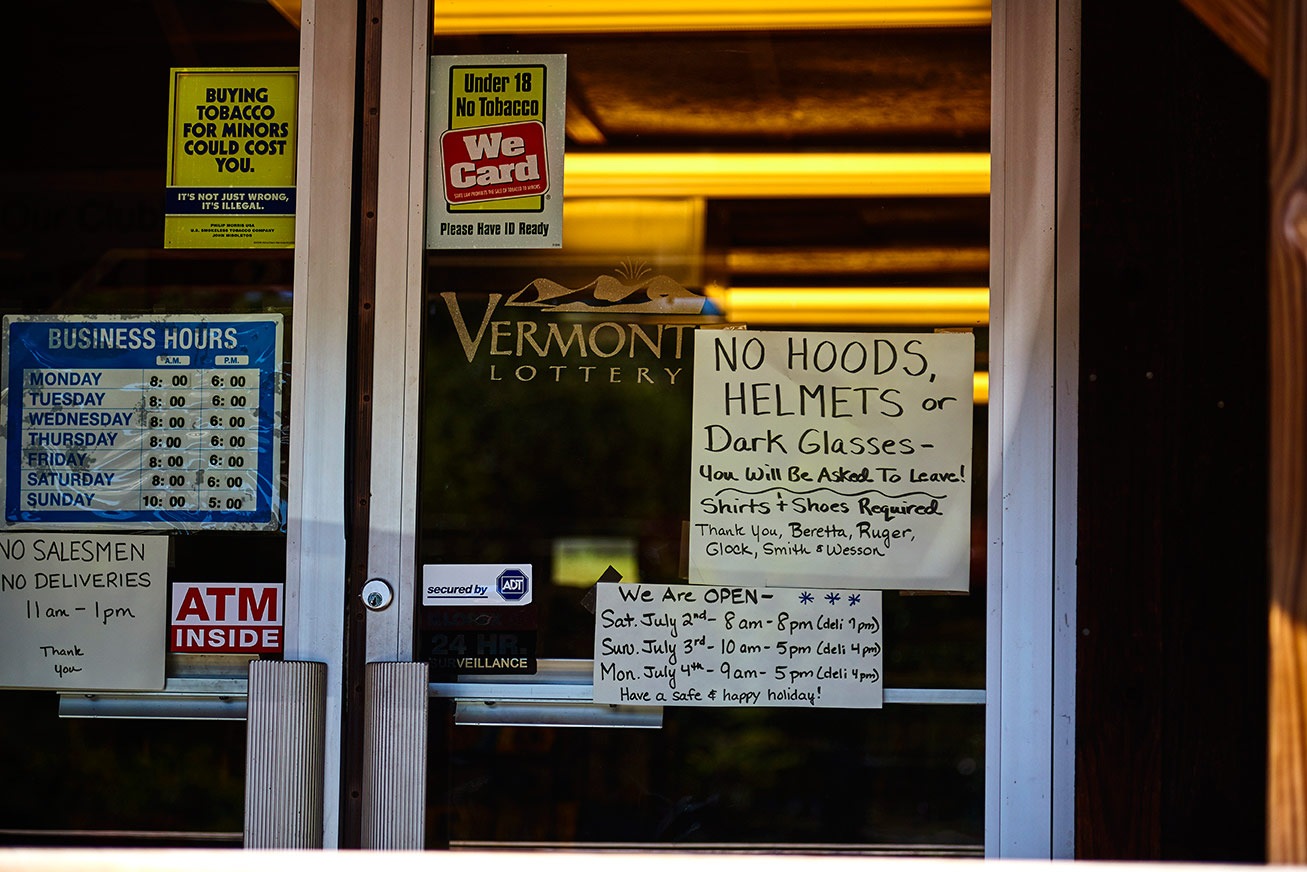 BUYING
TOBACCO
FOR MINORS
COULD COST
YOU.
IT'S NOT JUST WRONG,
IT'S ILLEGAL.
PHILIP MORRIS USA
U.S. SMOKELESS TOBACCO COMPANY
JOHN MIDDLETON
Under 18
No Tobacco
We
Card
®
Please Have ID Ready
VERMONT
LOTTERY
BUSINESS HOURS
A.M. P.M.
MONDAY 8:00 6:00
TUESDAY 8:00 6:00
WEDNESDAY 8:00 6:00
THURSDAY 8:00 6:00
FRIDAY 8:00 6:00
SATURDAY 8:00 6:00
SUNDAY 10:00 5:00
NO HOODS,
HELMETS or
Dark Glasses-
You Will Be Asked To Leave!
Shirts + Shoes Required
Thank You, Beretta, Ruger,
Glock, Smith & Wesson
NO SALESMEN
NO DELIVERIES
11am - 1pm
Thank
you
ATM
INSIDE
secured by ADT
24 HR.
SURVEILLANCE
We Are OPEN- ***
Sat. July 2nd - 8am - 8pm (deli 7pm)
Sun. July 3rd - 10am - 5pm (deli 4pm)
Mon. July 4th - 9am - 5pm (deli 4pm)
Have a safe & happy holiday!